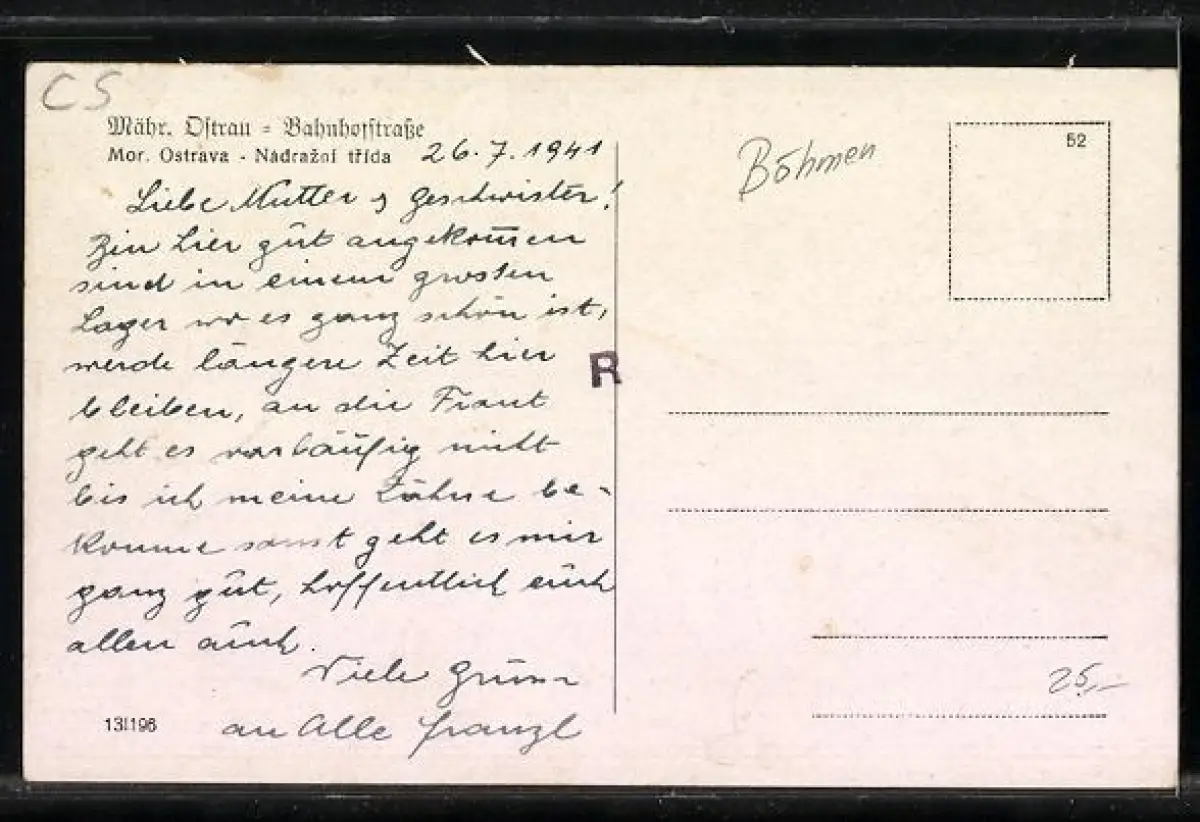 CS
Mähr. Ostrau - Bahnhofstraße
Mor. Ostrava - Nádražní třída 26.7.1941
Liebe Mutter & Geschwister!
Bin hier gut angekom̄en
sind in einem grossen
Lager wo es ganz schön ist,
werde längere Zeit hier
bleiben, an die Front
geht es vorläufig nicht
bis ich meine Zähne be-
komme sonst geht es mir
ganz gut, hoffentlich euch
allen auch.
Viele Grüsse
an Alle Franzl
13I196
R
Böhmen
52
25,-